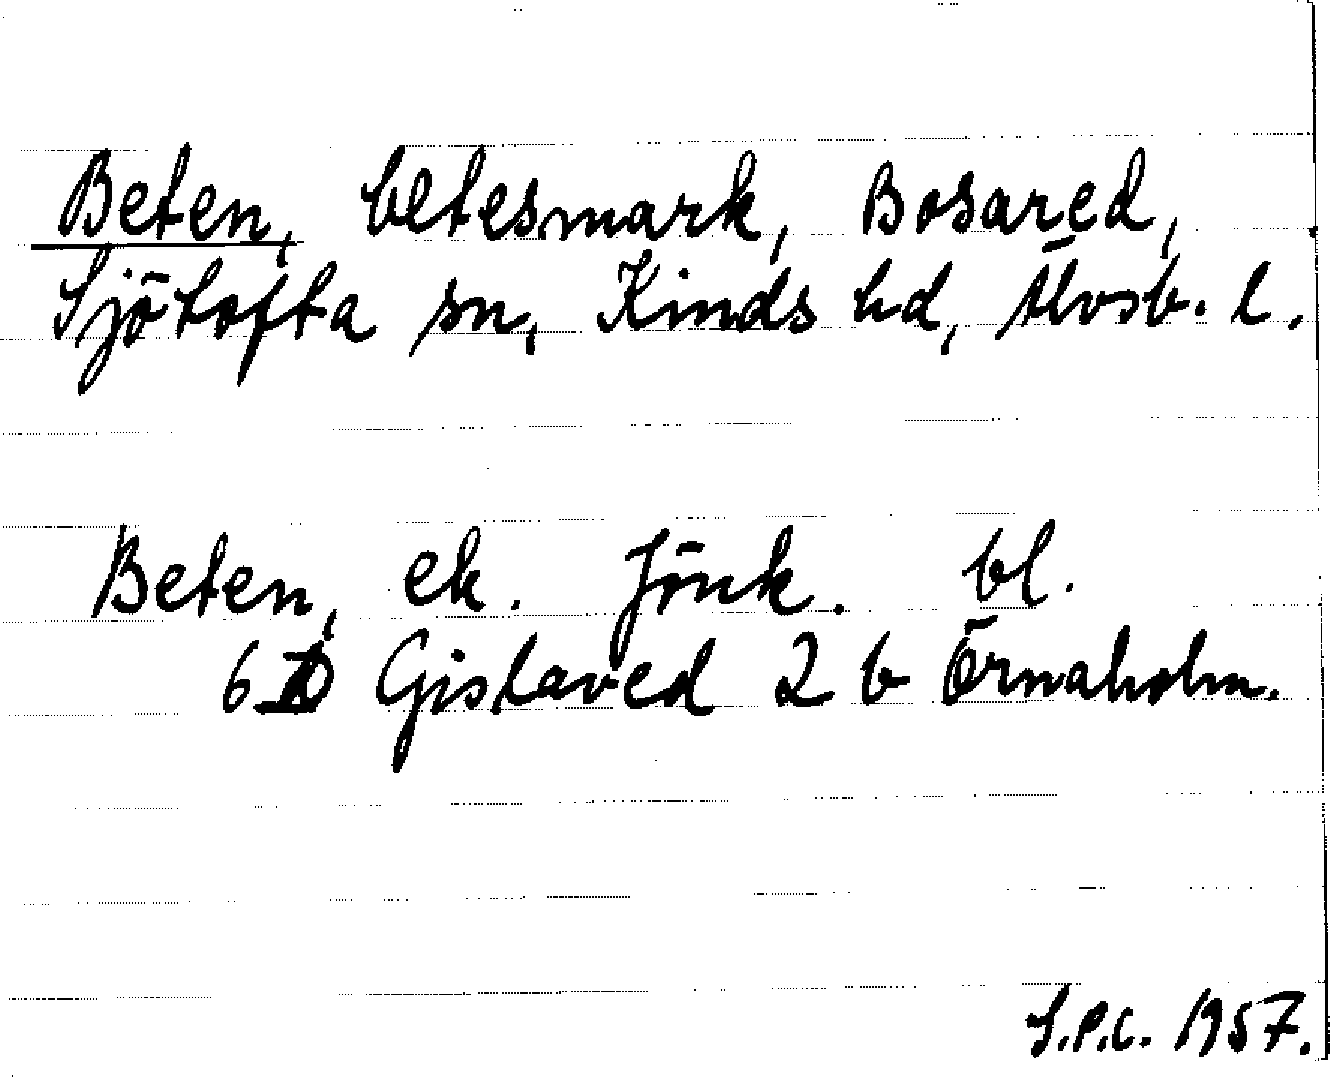 Beten, betesmark, Bosared,
Sjötofta sn, Kinds hd, Älvsb. l.
Beten, ek. Jönk. bl.
6 D Gislaved 2 b Örnaholm.
S.P.C. 1957.